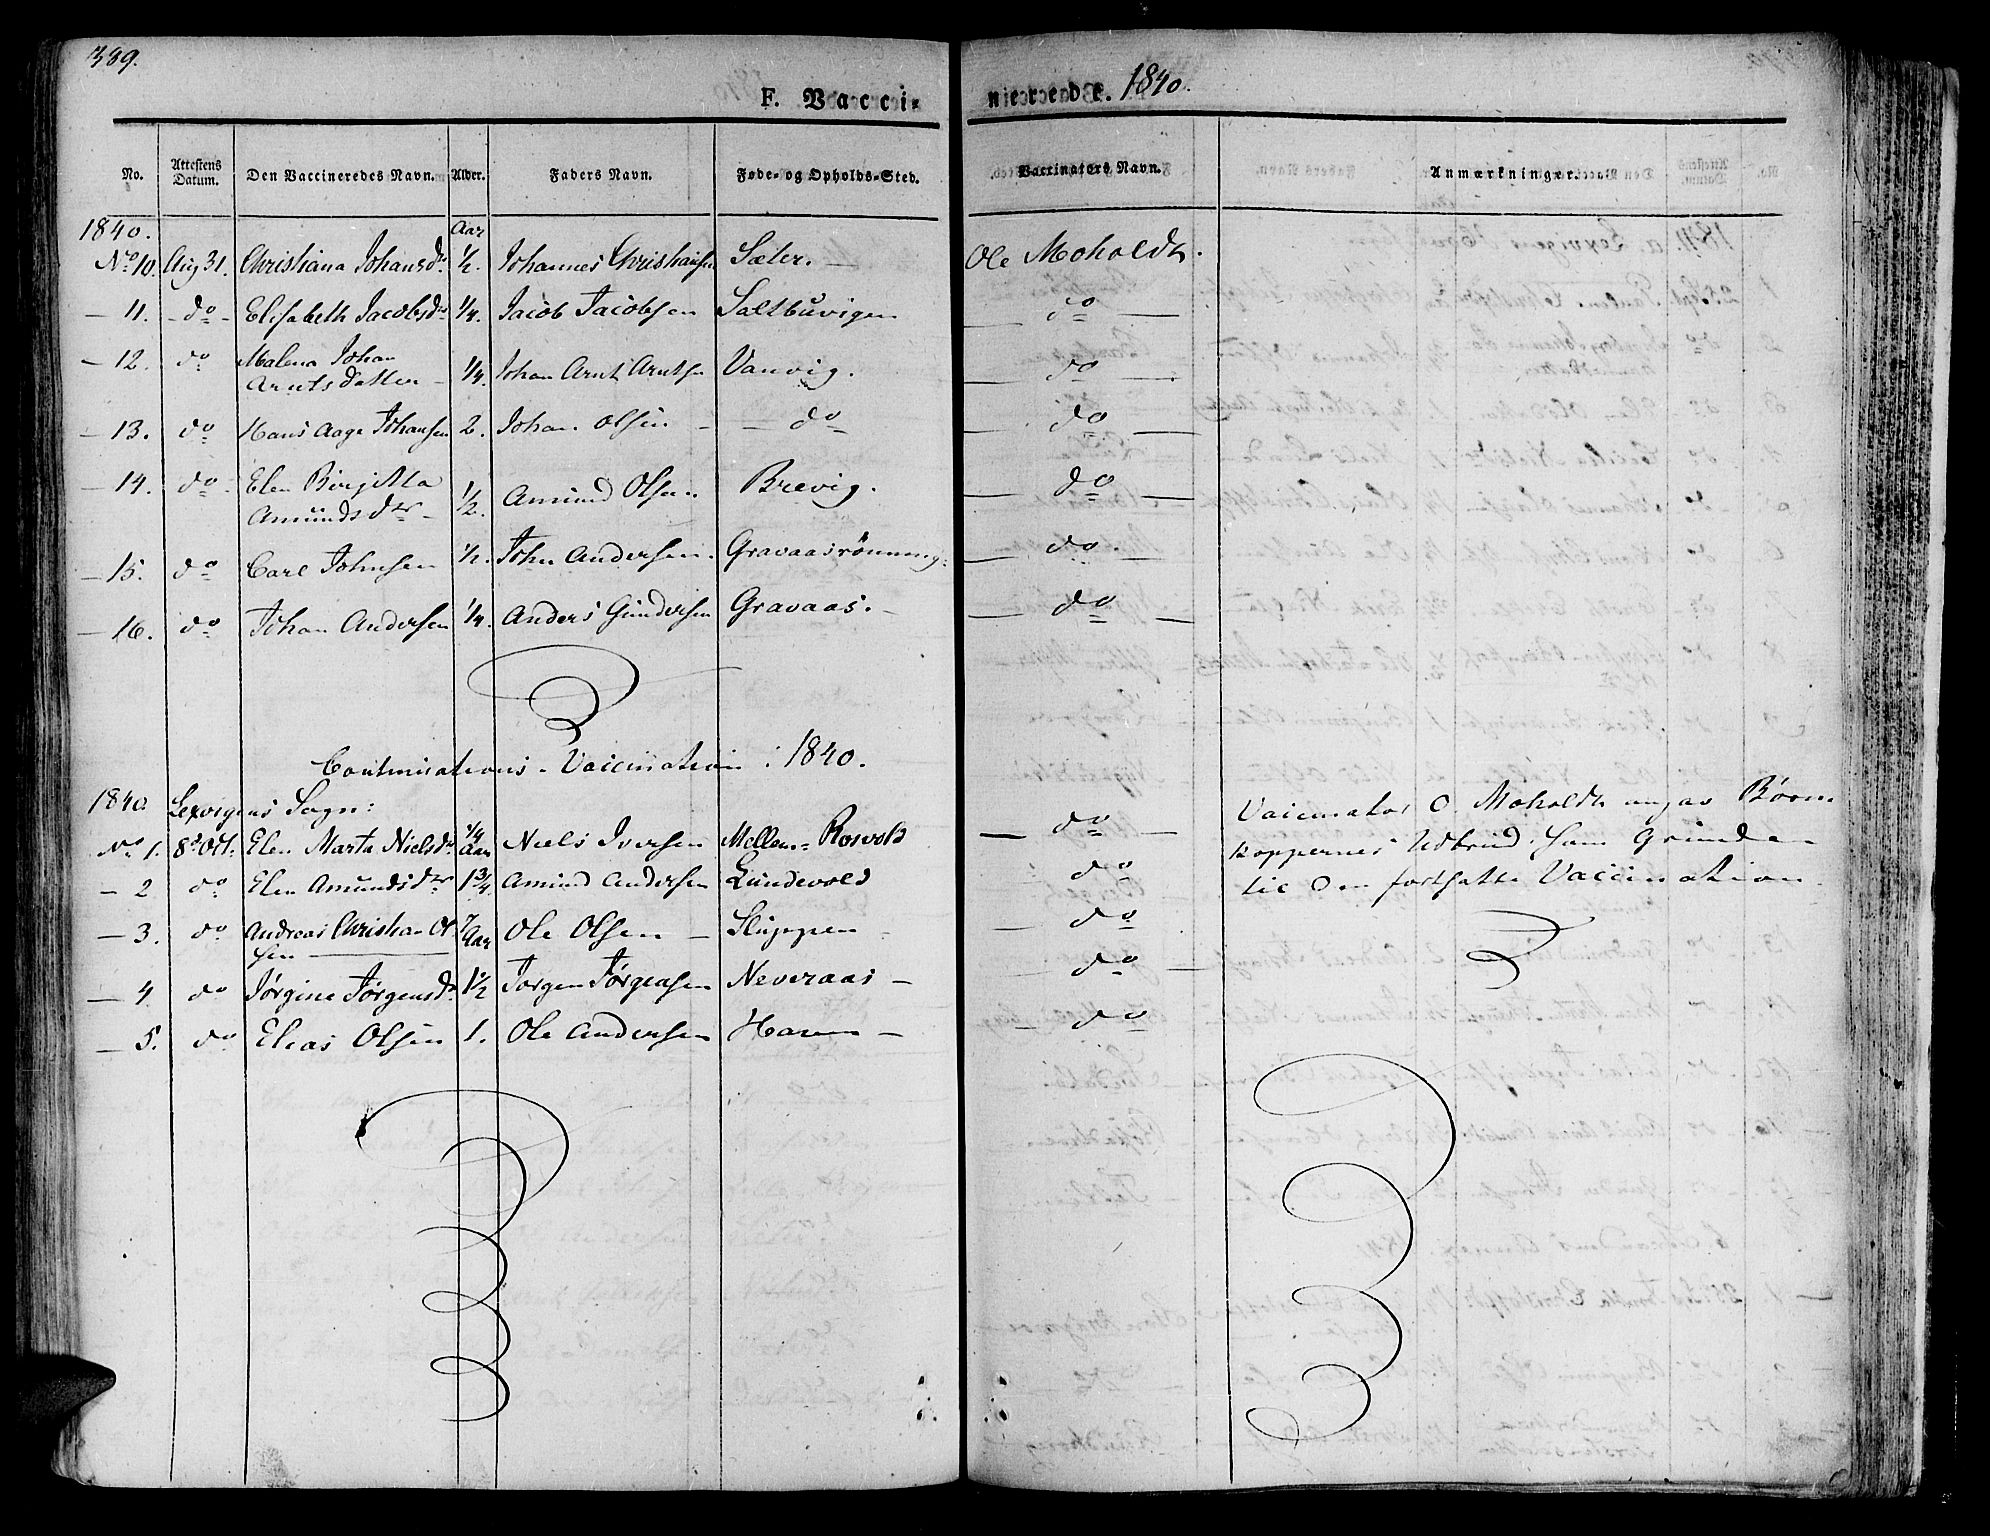 389.
F. Vacci-nerede. 1840.
No. Attestens Datum. Den Vaccineredes Navn. Alder. Faders Navn. Føde- og Opholds-Sted. Vaccinateurs Navn. Anmærkninger.
1840. Aar
No 10. Aug 31. Christiana Johansdr. 1/2. Johannes Christiansen Sæter. — Ole Moholdt.
— 11. - do - Elisabeth Jacobsdr 1/4. Jacob Jacobsen Saltbuvigen — do —
— 12. do Malena Johan Arntsdatter — 1/4. Johan Arnt Arntsen Vanvig. — do —
— 13. do Hans Aage Johansen 2. Johan Olsen — — do — — do —
— 14. do Elen Birgitta Amundsdtr — 1/2. Amund Olsen. Brevig. — do —
— 15. do Carl Johnsen 1/2. John Andersen. Gravaasrønning. — do. —
— 16. do Johan Andersen 1/4. Anders Gundersen Gravaas. — — do —
Continuations-Vaccination: 1840.
1840. Lexvigens Sogn:
No 1. 8de Oct: Elen Marta Nielsdr. 1/4 Aar Niels Iversen Mellem-Rosvold — do —
— 2 do Elen Amundsdtr 1 3/4 Amund Andersen Lundevold do
— 3. do Andreas Christian Olsen — Aar Ole Olsen — Sluppen — do
— 4 do Jørgine Jørgensdr 1 1/2 Jørgen Jørgensen Neveraas — do —
— 5. do Elias Olsen 1. Ole Andersen Haren — — do
Vaccinator O. Moholdt angav Børne
koppernes Udbrud som Grunden
til den fortsatte Vaccination.